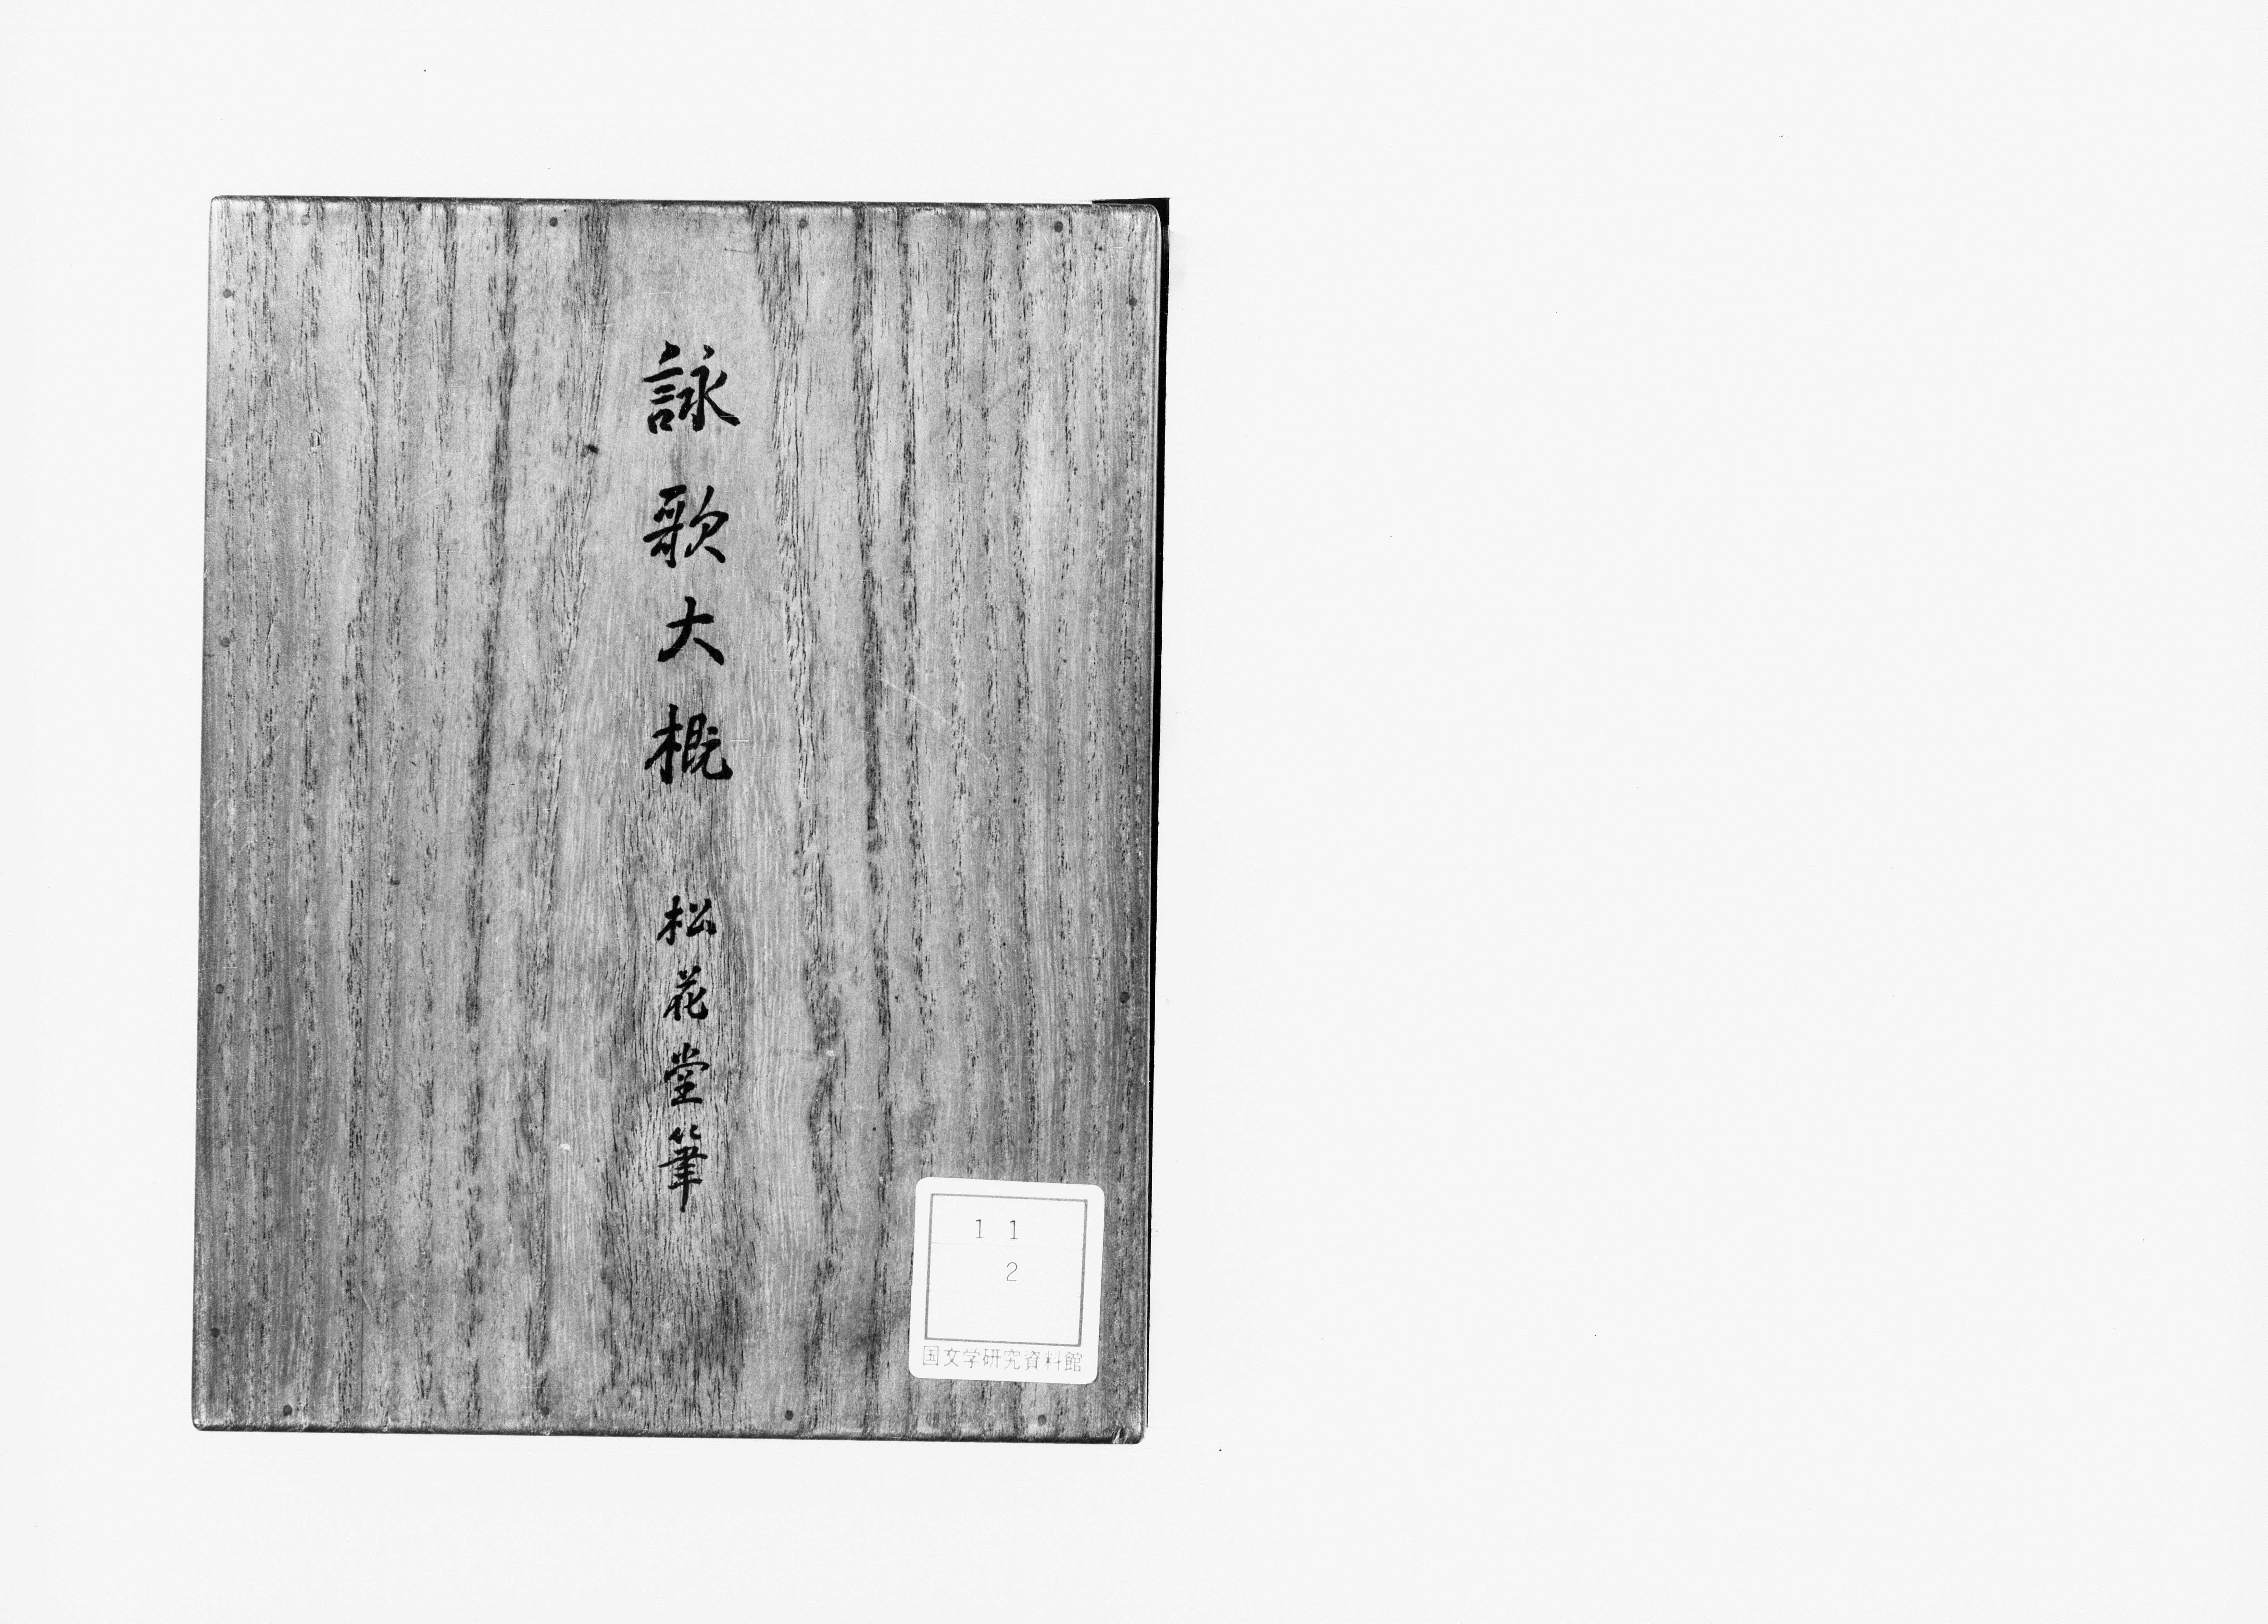 詠歌大概 松花堂筆
11
2
国文学研究資料館